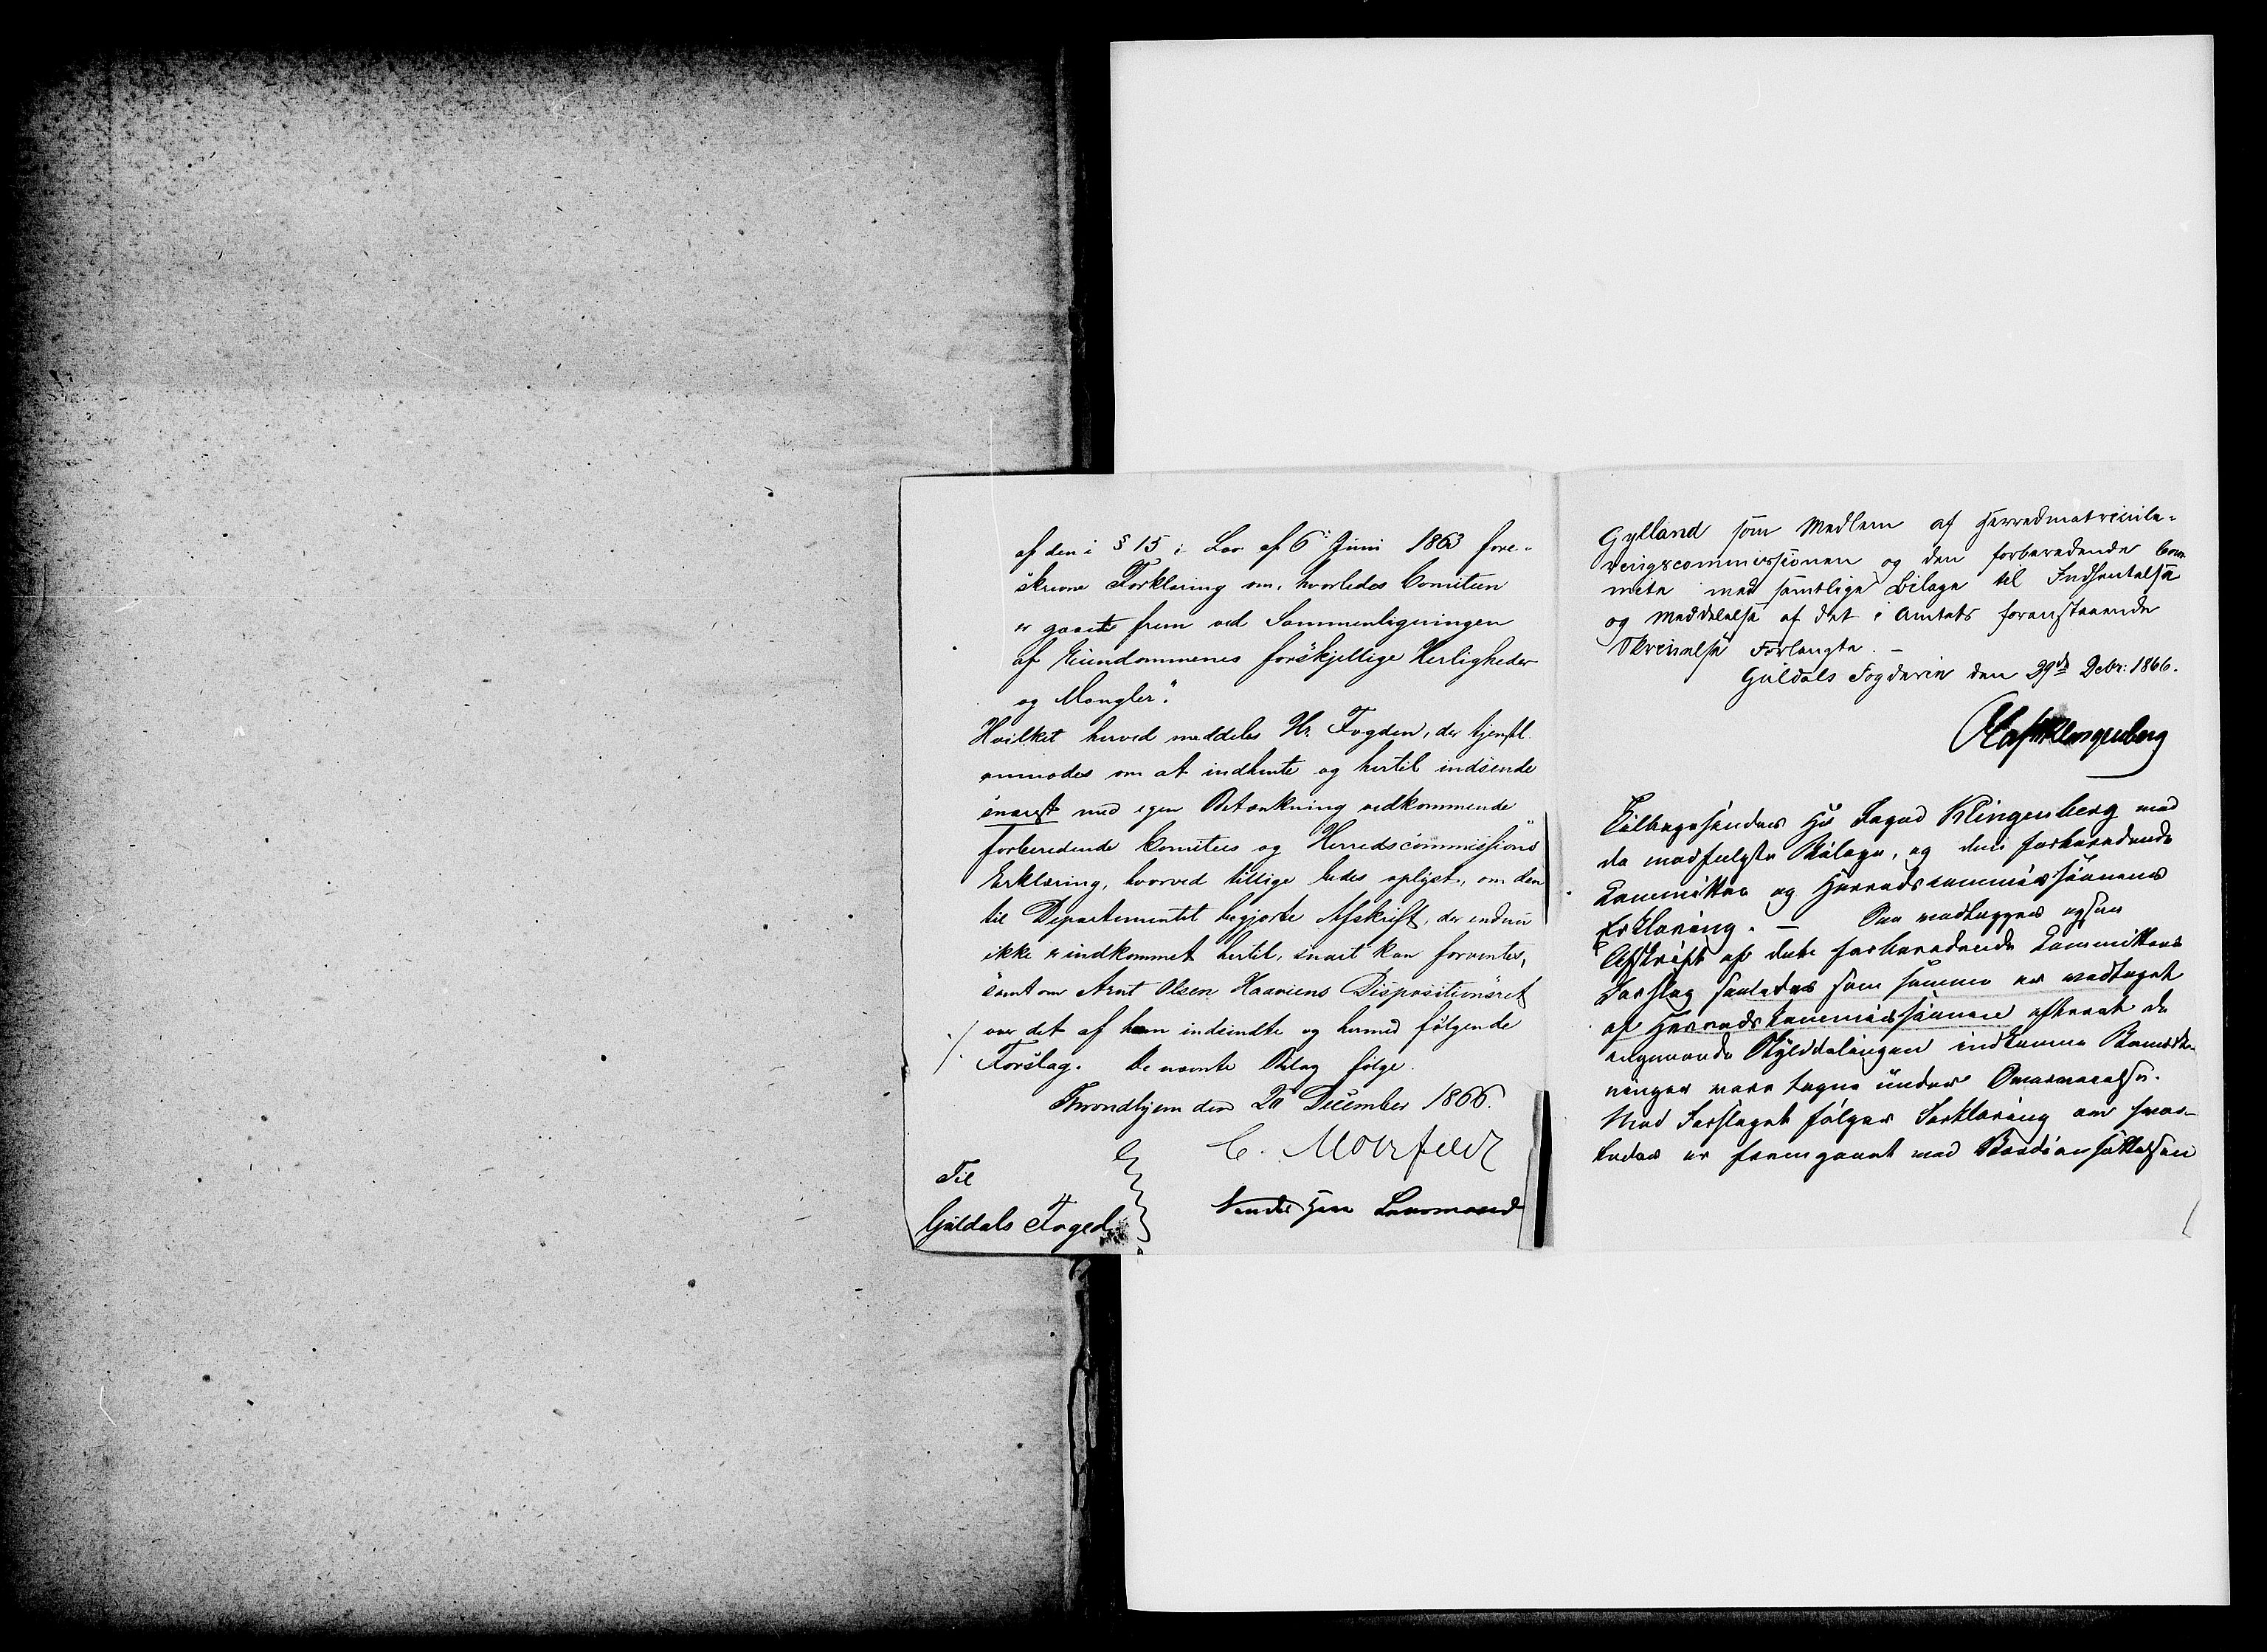 af den i § 15 i Lov af 6 Juni 1863 fore-
skrevne Forklaring om, hvorledes Comiteen
er gaaet frem ved Sammenligningen
af Eiendommenes forskjellige Herligheder
og Mangler".
Hvilket herved meddeles Hr. Fogden, der tjenstl.
anmodes om at indhente og hertil indsende
snarest med egen Betænkning vedkommende
forberedende Comitees og Herredscommissions
Erklæring, hvorved tillige bedes oplyst, om den
til Departementet begjærte Afskrift, der endnu
ikke er indkommet hertil, snart kan forventes,
samt om Arnt Olsen Haaviens Dispositionsret
over det af ham indsendte og hermed følgende
Forslag. De nævnte Bilag følge.
Throndhjem den 20 December 1866.
C. Motzfeldt
Til
Guldals Foged
Sendes Herr Lensmand
Gylland som Medlem af Herredmatricule-
ringscommissionen og den forberedende Com-
mite med samtlige Bilage til Indhentelse
og Meddelelse af det i Amtets foranstaaende
Skrivelse Forlangte. -
Guldals Fogderie den 29de Decbr: 1866.
Klingenberg
Tilbagesendes Hr Foged Klingenberg med
de medfulgte Bilage, og den forberedende
Kommittes og Herredskommissionens
Erklæring. - Den vedlægges ogsaa
Afskrift af dette forberedende Kommittees
Forslag saaledes som samme er vedtaget
af Herredskommissionen efterat de
angaaende Skylddelingen indkomne Bemærk-
ninger vare tagne under Overveielse.
Med Forslaget følger Forklaring om hvor-
ledes er fremgaaet ved Værdiansættelsen